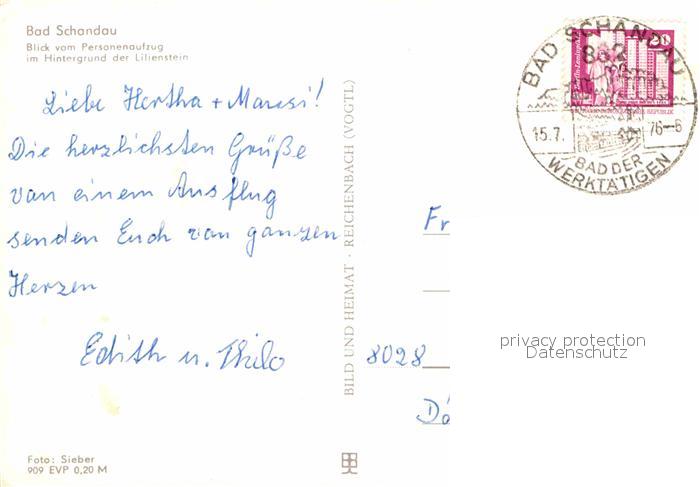 Bad Schandau
Blick vom Personenaufzug
im Hintergrund der Lilienstein
Liebe Hertha +
Die herzlichsten Grüße
von einem Ausflug
senden Euch von ganzen
Herzen
Edith u. Thilo
Foto: Sieber
909 EVP 0,20 M
BILD UND HEIMAT · REICHENBACH (VOGTL)
BAD SCHANDAU
832
15.7. 76-6
BAD DER
WERKTÄTIGEN
20
Fr
8028
privacy protection
Datenschutz